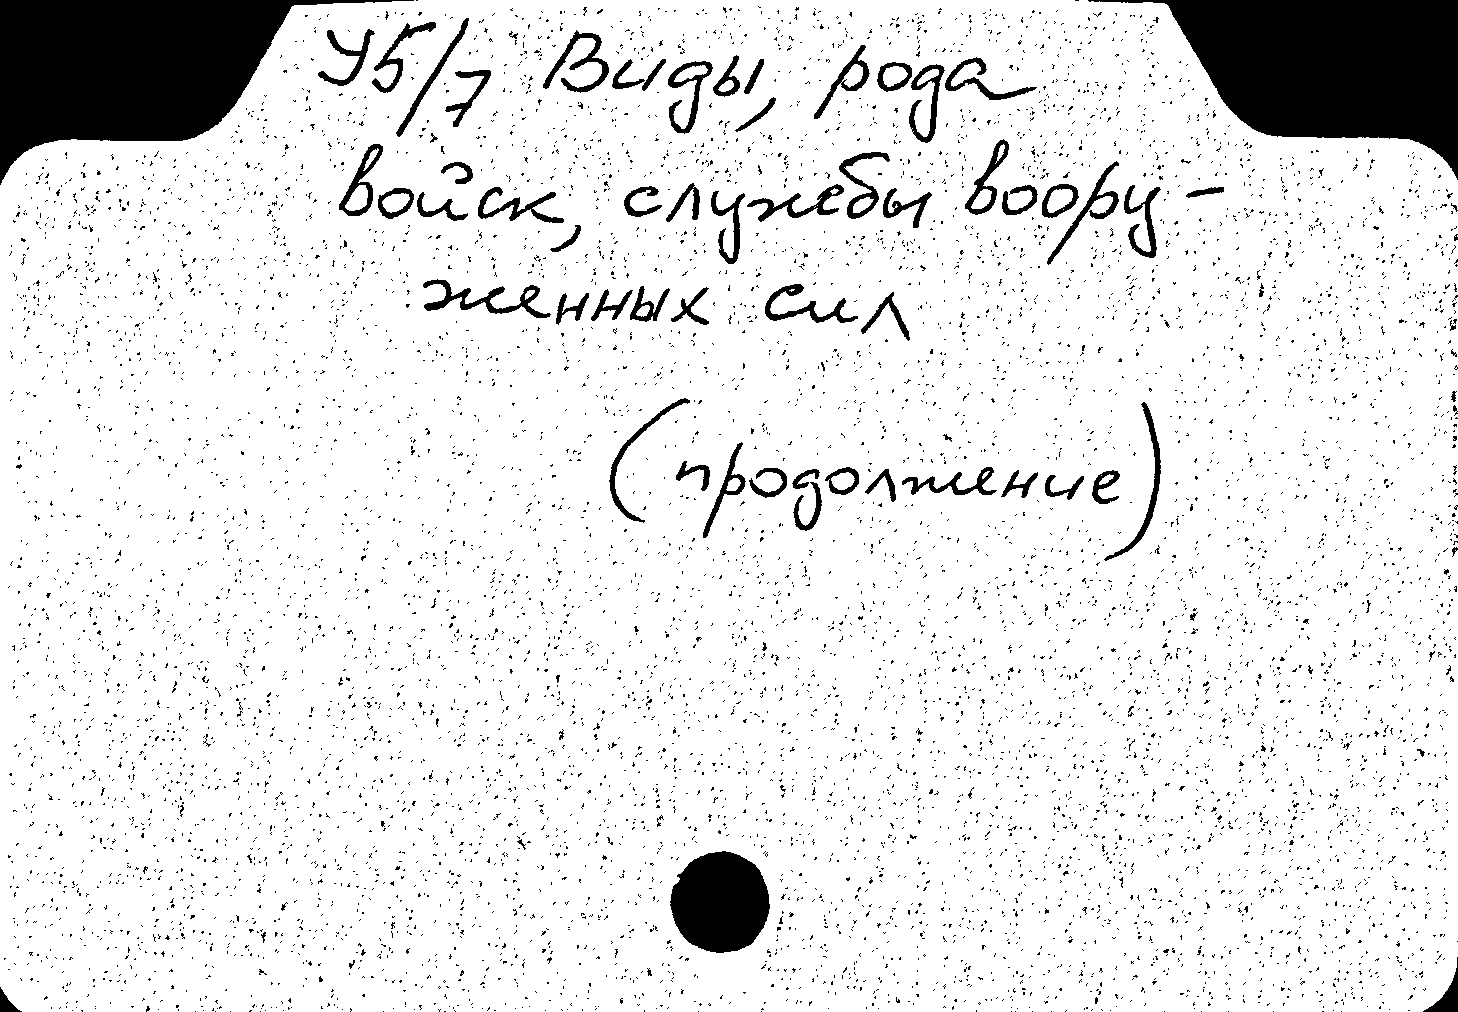 У5/7 Виды, рода
войск, службы воору-
женных сил
(продолжение)